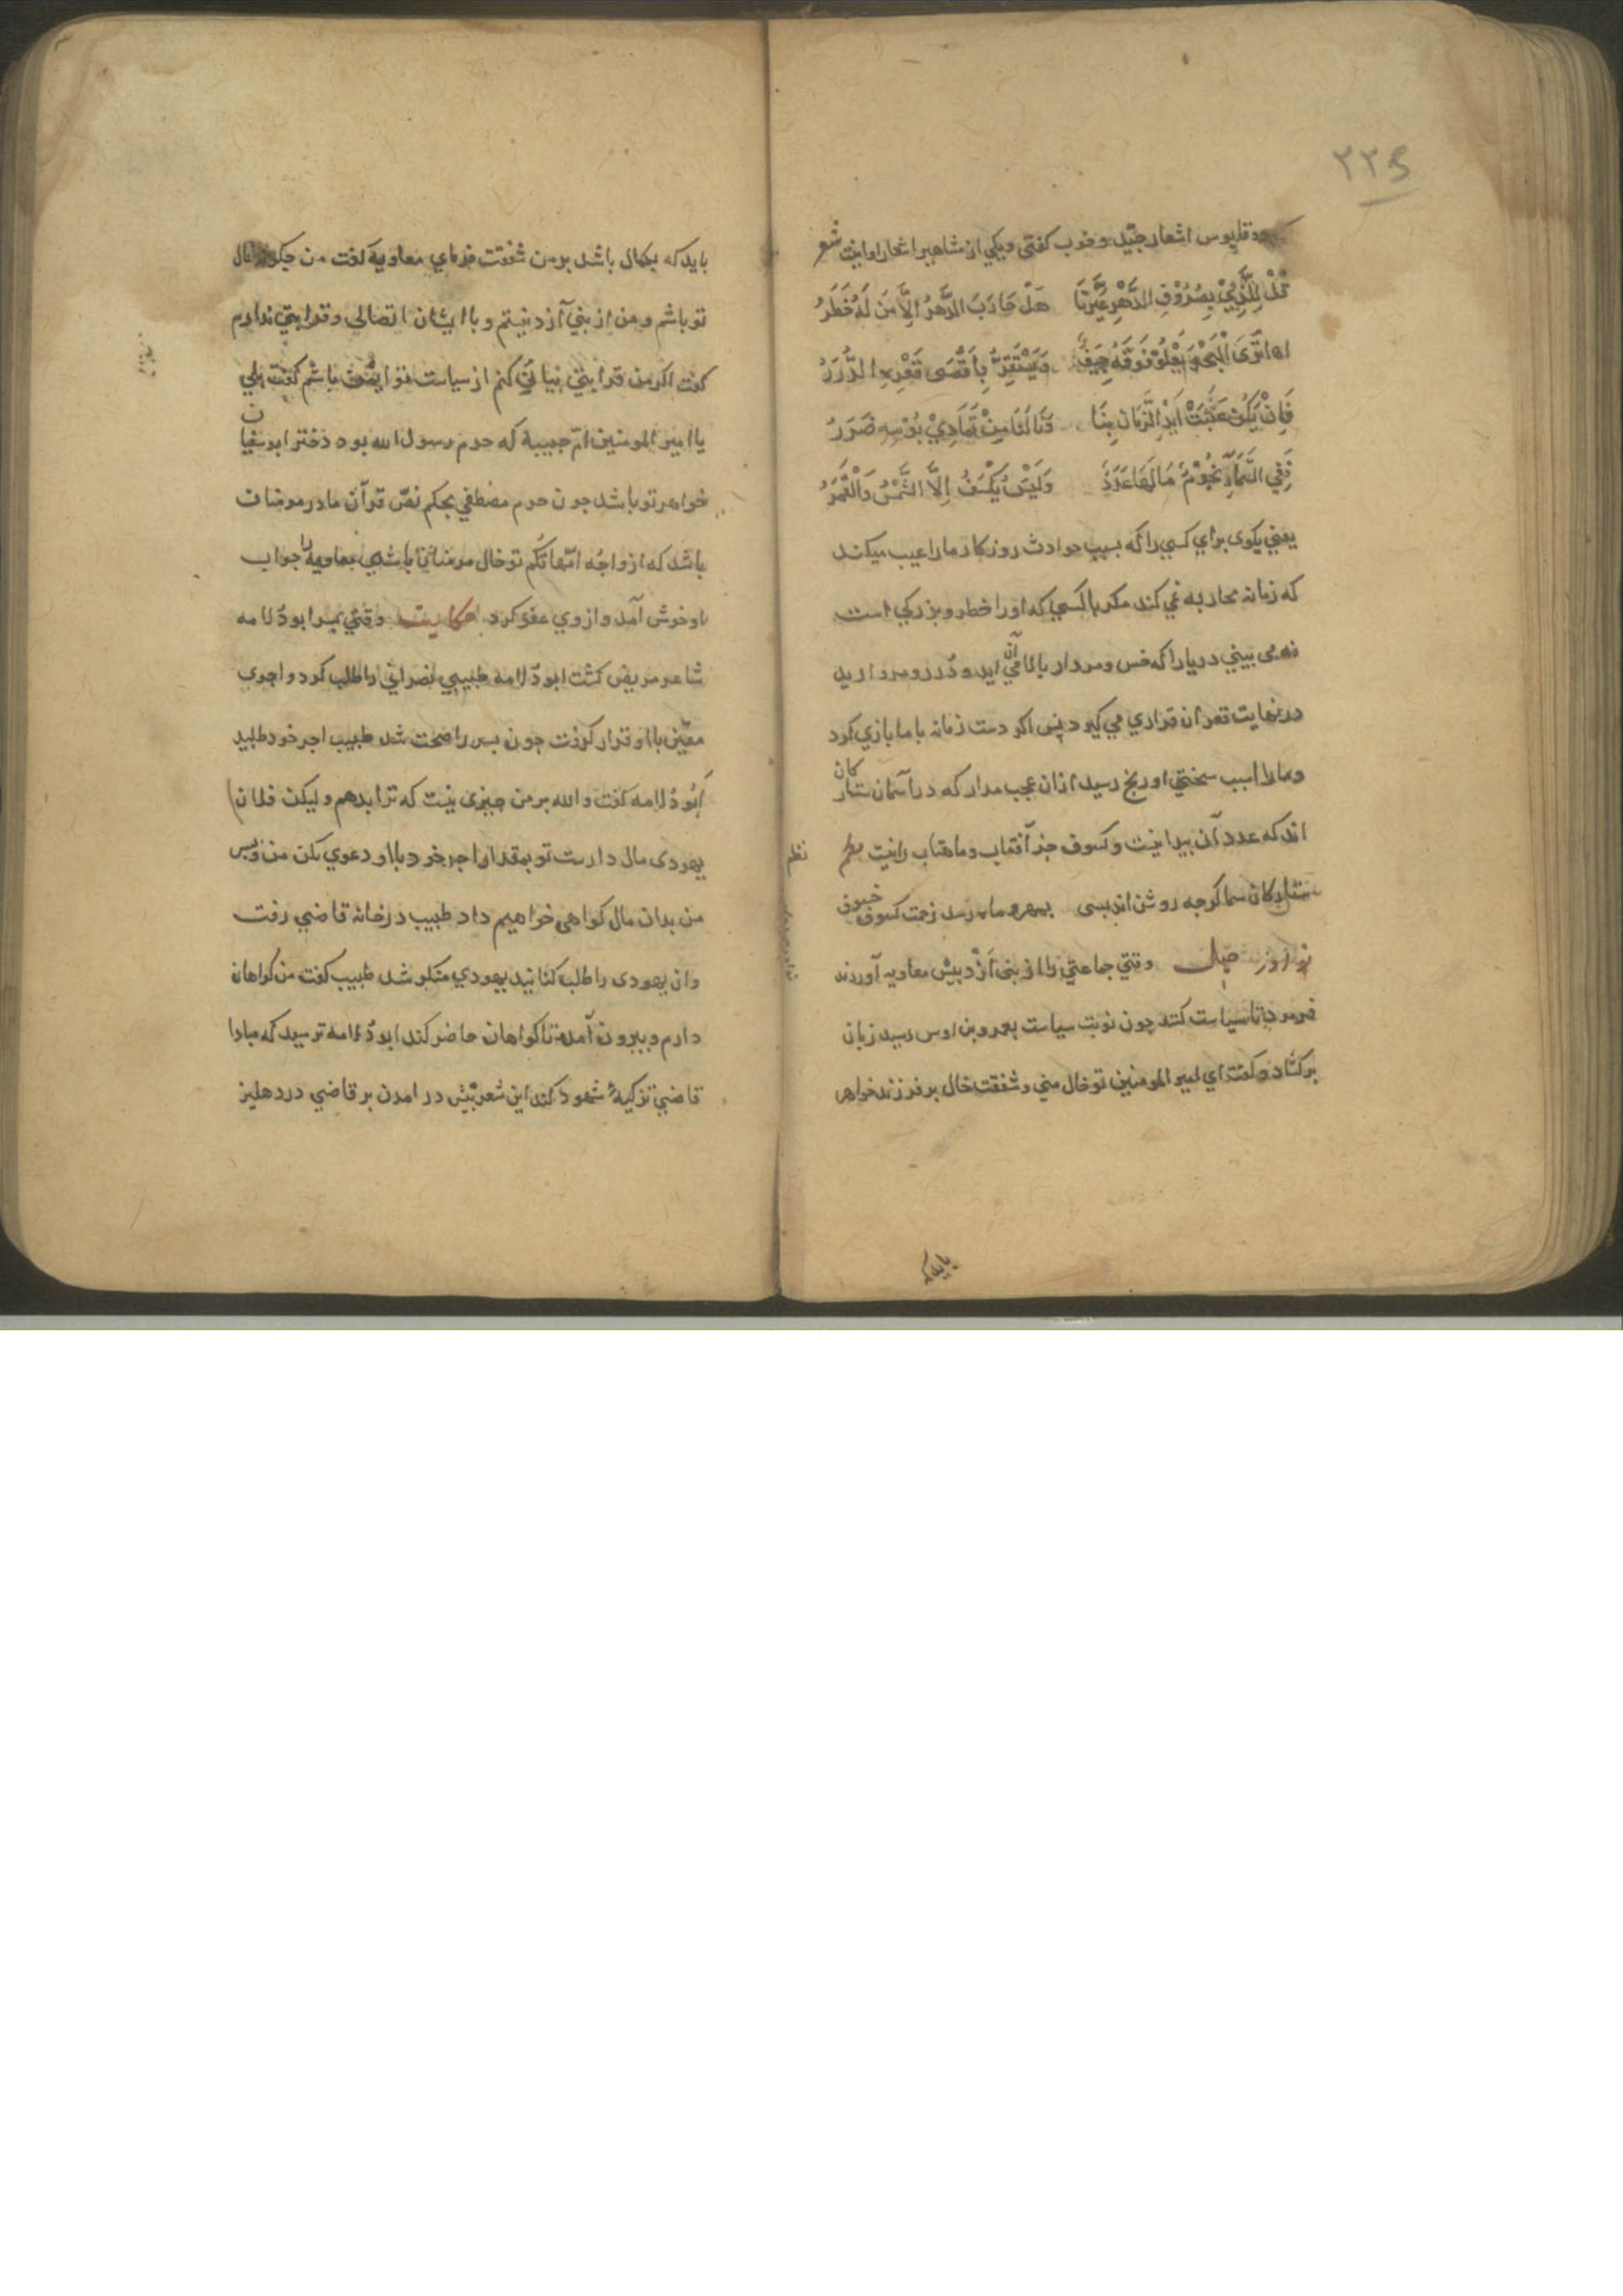 ۲۲۵
وقلپوس اشعار جیّد و خوب کفتی ویکی از مشاهیر اشعار او اینت شعر
قُلْ لِلَّذِيْ بِصُرُوْفِ الدَّهْرِ عَيَّرَنَا هَلْ حَارَبَ الدَّهْرُ اِلَّا مَنْ لَهُ خَطَرُ
اما تَرَى الْبَحْرَ يَعْلُوْ فَوْقَهُ جِيَفٌ وَيَسْتَقِرُّ بِاَقْصَى قَعْرِهِ الدُّرَرُ
فَاِنْ يَكُنْ عَبَثَتْ اَيْدِ الزَّمَانِ بِنَا وَنَالَنَا مِنْ تَمَادِيْ بُوْسِهِ ضَرَرُ
فَفِي السَّمَآءِ نُجُوْمٌ مَالَهَا عَدَدٌ وَلَيْسَ يُكْسَفُ اِلَّا الشَّمْسُ وَالْقَمَرُ
یعنی بکوی برای کسی را که بسبب حوادث روزکار مارا عیب میکند
که زمانه محاربه نمی کند مکر با کسی که اورا خطر و بزرکی است
نمی بینی دریارا که خس و مردار بالای آن می اید و دُرر و مروارید
در نهایت قعر ان قراری می کیرد پس اکر دست زمانه با ما بازی کرد
ومارا اسب سختی او رنج رسید ازان عجب مدار که در آسمان ستارکان
اند که عدد آن پیدا نیت و کسوف جز آفتاب و ماهتاب را نیت نظم
نظم
ستارکان سما کرچه روشن اند بسی بمهر و ماه رسد زحمت کسوف خسوف
وقتی جماعتی را از بنی اَزْد پیش معاویه آوردند
فرمود تا سیاست کنند چون نوبت سیاست بعمرو بن اوس رسید زبان
برکشاد و کفت ای امیر المومنین تو خال منی و شفقت خال بر فرزند خواهر
باید که
باید که بکمال باشد بر من شفقت فرمای معاویه کفت من چکونه خال
تو باشم و من از بنی آزد نیستم و با ایشان اتصالی و قرابتی ندارم
کفت اکر من قرابتی بیان کنم از سیاست تو ایمن باشم کفت بلی
یا امیر المومنین امّ حبیبة که حرم رسول الله بود دختر ابو سفیان
خواهر تو باشد چون حرم مصطفی بحکم نصّ قرآن مادر مومنان
باشد که ازواجُه امّهاتکُم تو خال مومنان باشی معاویه را جواب
او خوش آمد و از وی عفو کرد حکایت وقتی پسر ابو دُلامه
شاعر مریض کشت ابو دُلامه طبیبی نصرانی را طلب کرد و اجری
معیّن با او قرار کرفت چون پسر را صحت شد طبیب اجر خود طلبید
اَبُو دُلامه کفت والله بر من چیزی نیت که ترا بدهم و لیکن فلان
یهودی مال دارست تو بمقدار اجر خود با او دعوی بکن من و پسر
من بدان مال کواهی خواهیم داد طبیب در خانه قاضی رفت
و ان یهودی را طلب کنانید یهودی منکر شد طبیب کفت من کواهان
دارم و بیرون آمد تا کواهان حاضر کند ابو دُلامه ترسید که مبادا
قاضی تزکیهٔ شهود کند این شعر پیش در امدن بر قاضی در دهلیز